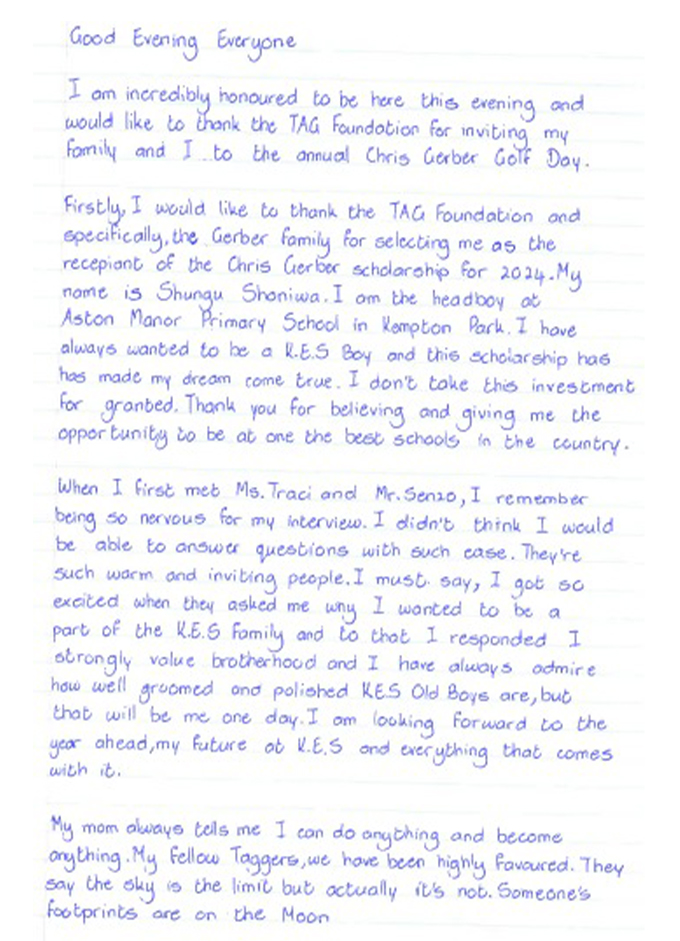 Good Evening Everyone
I am incredibly honoured to be here this evening and
would like to thank the TAG Foundation for inviting my
family and I to the annual Chris Gerber Golf Day.
Firstly, I would like to thank the TAG Foundation and
specifically, the Gerber family for selecting me as the
recepiant of the Chris Gerber scholarship for 2024. My
name is Shungu Shoniwa. I am the headboy at
Aston Manor Primary School in Kempton Park. I have
always wanted to be a K.E.S Boy and this scholarship has
has made my dream come true. I don't take this investment
for granted. Thank you for believing and giving me the
opportunity to be at one the best schools in the country.
When I first met Ms. Traci and Mr. Senzo, I remember
being so nervous for my interview. I didn't think I would
be able to answer questions with such ease. They're
such warm and inviting people. I must say, I got so
excited when they asked me why I wanted to be a
part of the K.E.S Family and to that I responded I
strongly value brotherhood and I have always admire
how well groomed and polished K.E.S Old Boys are, but
that will be me one day. I am looking forward to the
year ahead, my future at K.E.S and everything that comes
with it.
My mom always tells me I can do anything and become
anything. My fellow Taggers, we have been highly favoured. They
say the sky is the limit but actually it's not. Someone's
footprints are on the Moon